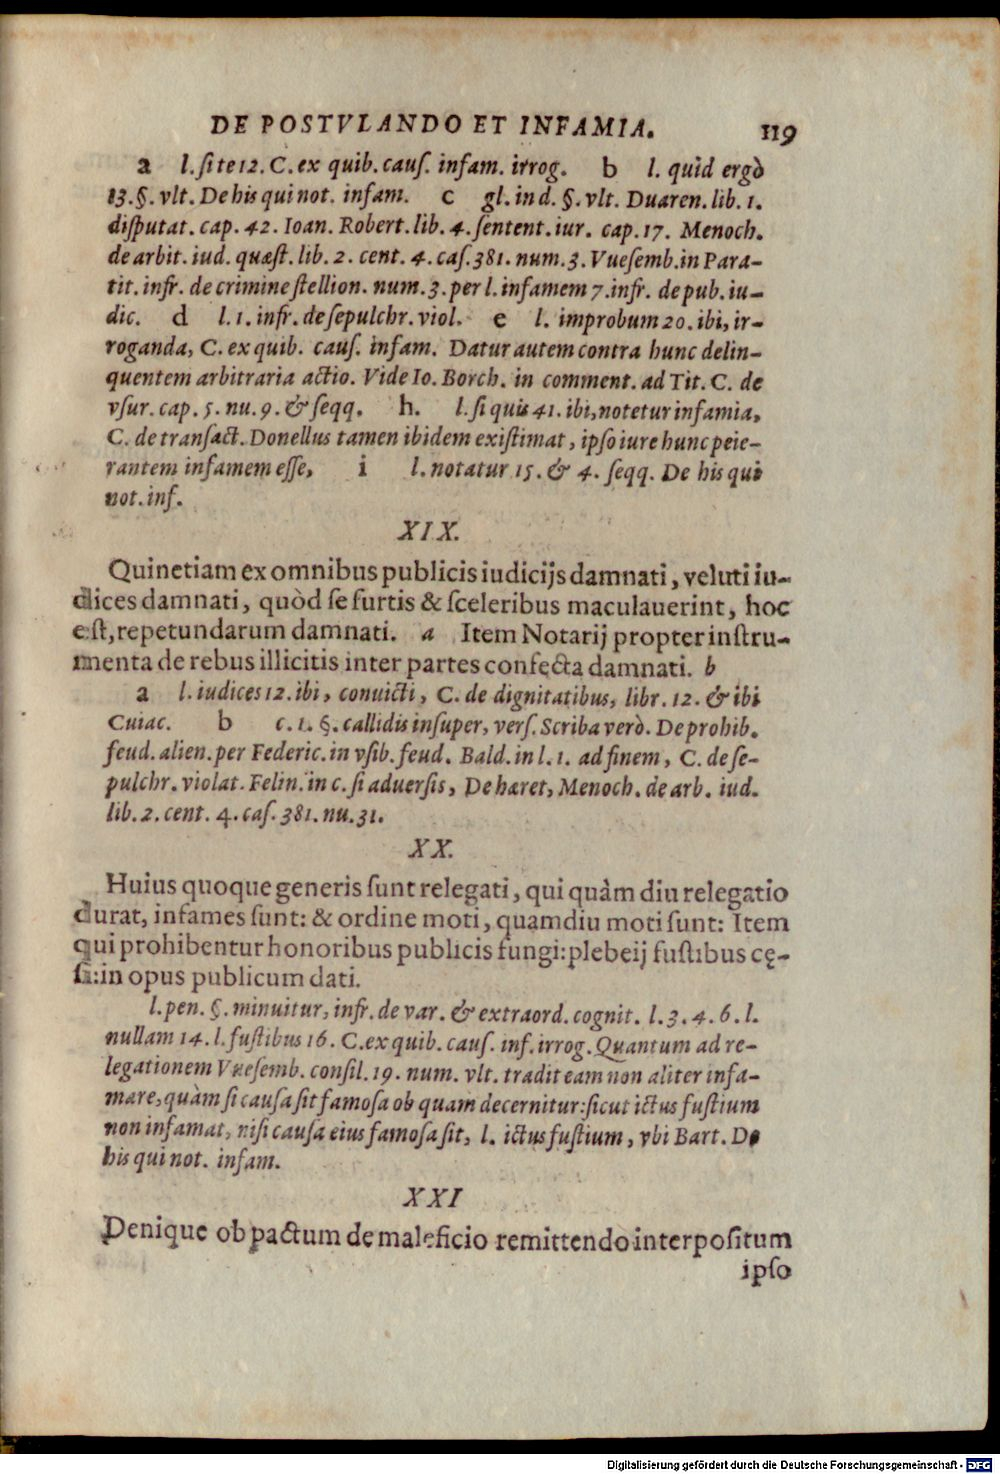 DE POSTVLANDO ET INFAMIA. 119
a l. ſi te 12. C. ex quib. cauſ. infam. irrog. b l. quid ergò
13. §. vlt. De his qui not. infam. c gl. in d. §. vlt. Duaren. lib. 1.
diſputat. cap. 42. Ioan. Robert. lib. 4. ſentent. iur. cap. 17. Menoch.
de arbit. iud. quæſt. lib. 2. cent. 4. caſ. 381. num. 3. Vueſemb. in Para-
tit. infr. de crimine ſtellion. num. 3. per l. infamem 7. infr. de pub. iu-
dic. d l. 1. infr. de ſepulchr. viol. e l. improbum 20. ibi, ir-
roganda, C. ex quib. cauſ. infam. Datur autem contra hunc delin-
quentem arbitraria actio. Vide Io. Borch. in comment. ad Tit. C. de
vſur. cap. 5. nu. 9. & ſeqq. h. l. ſi quis 41. ibi, notetur infamia,
C. de tranſact. Donellus tamen ibidem exiſtimat, ipſo iure hunc peie-
rantem infamem eſſe, i l. notatur 15. & 4. ſeqq. De his qui
not. inf.
XIX.
Quinetiam ex omnibus publicis iudicijs damnati, veluti iu-
dices damnati, quòd ſe furtis & ſceleribus maculauerint, hoc
eſt, repetundarum damnati. a Item Notarij propter inſtru-
menta de rebus illicitis inter partes confęcta damnati. b
a l. iudices 12. ibi, conuicti, C. de dignitatibus, libr. 12. & ibi
Cuiac. b c. 1. §. callidis inſuper, verſ. Scriba verò. De prohib.
feud. alien. per Federic. in vſib. feud. Bald. in l. 1. ad finem, C. de ſe-
pulchr. violat. Felin. in c. ſi aduerſis, De hæret, Menoch. de arb. iud.
lib. 2. cent. 4. caſ. 381. nu. 31.
XX.
Huius quoque generis ſunt relegati, qui quàm diu relegatio
durat, infames ſunt: & ordine moti, quamdiu moti ſunt: Item
qui prohibentur honoribus publicis fungi: plebeij fuſtibus cę-
ſi: in opus publicum dati.
l. pen. §. minuitur, infr. de var. & extraord. cognit. l. 3. 4. 6. l.
nullam 14. l. fuſtibus 16. C. ex quib. cauſ. inf. irrog. Quantum ad re-
legationem Vueſemb. conſil. 19. num. vlt. tradit eam non aliter infa-
mare, quàm ſi cauſa ſit famoſa ob quam decernitur: ſicut ictus fuſtium
non infamat, niſi cauſa eius famoſa ſit, l. ictus fuſtium, vbi Bart. De
his qui not. infam.
XXI
Denique ob pactum de maleficio remittendo interpoſitum
ipſo
Digitalisierung gefördert durch die Deutsche Forschungsgemeinschaft - DFG